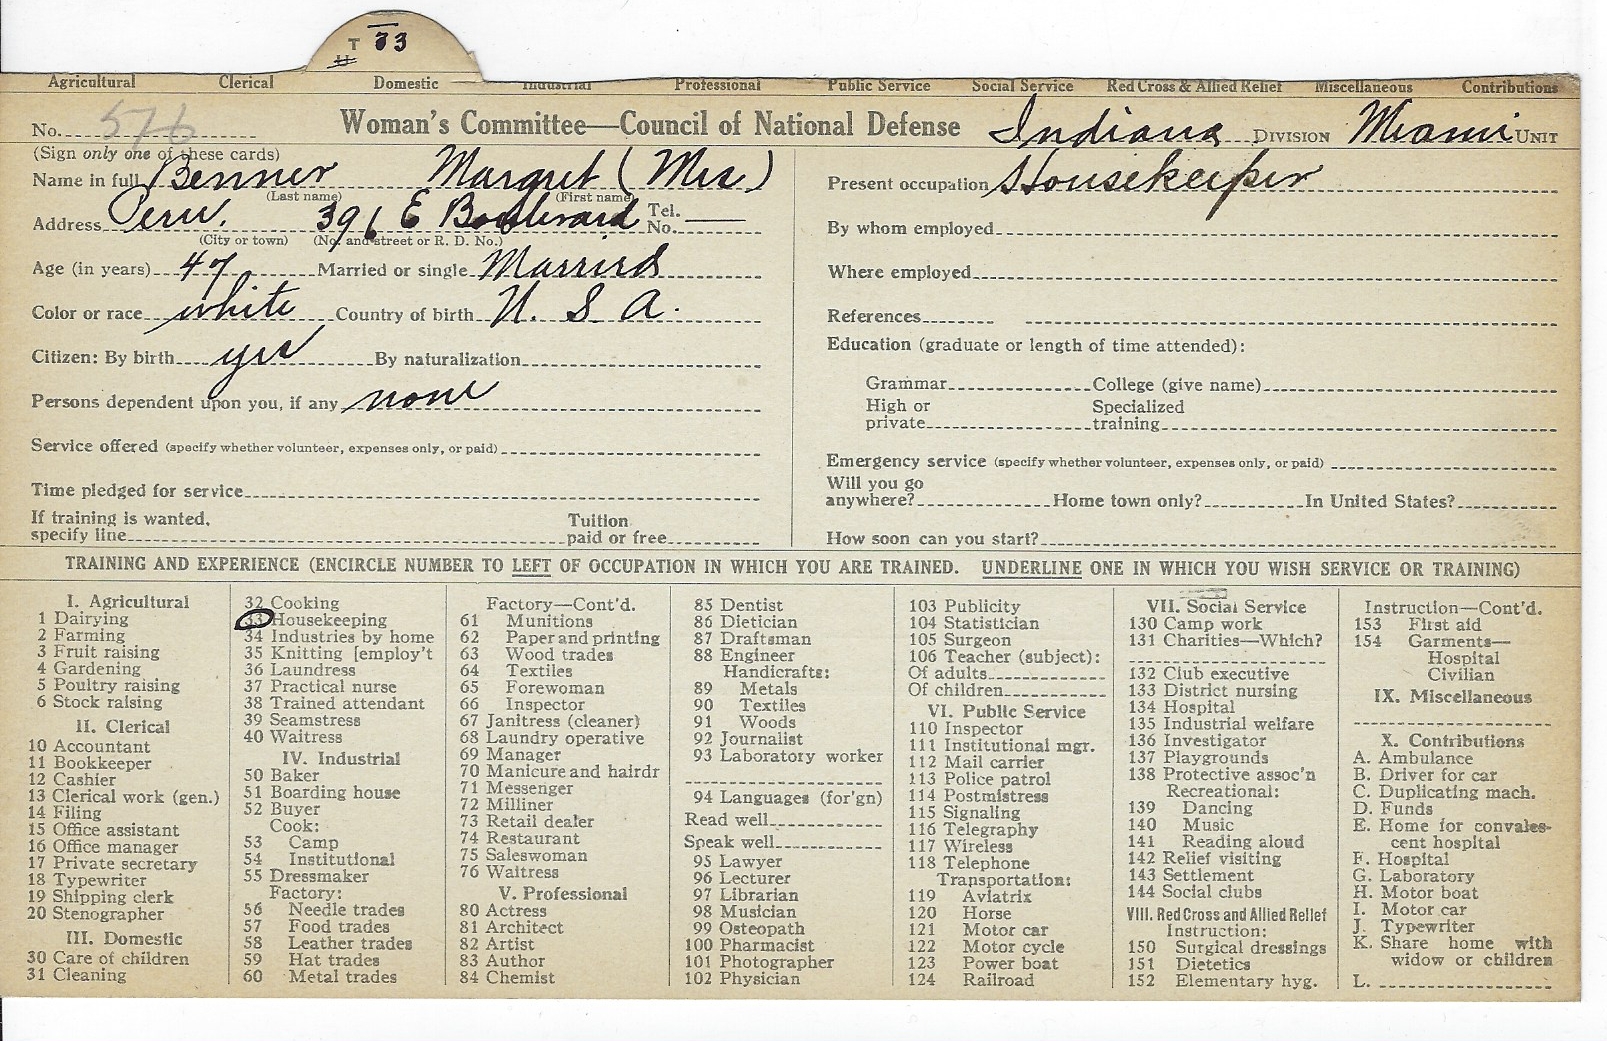 T 33
H
Agricultural Clerical Domestic Industrial Professional Public Service Social Service Red Cross & Allied Relief Miscellaneous Contributions
No. 576 Woman's Committee—Council of National Defense Indiana DIVISION Miami UNIT
(Sign only one of these cards)
Name in full Benner Margret (Mrs)
(Last name) (First name)
Address Peru. 396 E Boulevard Tel. No.
(City or town) (No. and street or R. D. No.)
Age (in years) 47 Married or single Married
Color or race white Country of birth U. S. A.
Citizen: By birth yes By naturalization
Persons dependent upon you, if any none
Service offered (specify whether volunteer, expenses only, or paid)
Time pledged for service
If training is wanted, specify line Tuition paid or free
Present occupation Housekeeper
By whom employed
Where employed
References
Education (graduate or length of time attended):
Grammar College (give name)
High or private Specialized training
Emergency service (specify whether volunteer, expenses only, or paid)
Will you go anywhere? Home town only? In United States?
How soon can you start?
TRAINING AND EXPERIENCE (ENCIRCLE NUMBER TO LEFT OF OCCUPATION IN WHICH YOU ARE TRAINED. UNDERLINE ONE IN WHICH YOU WISH SERVICE OR TRAINING)
I. Agricultural
1 Dairying
2 Farming
3 Fruit raising
4 Gardening
5 Poultry raising
6 Stock raising
II. Clerical
10 Accountant
11 Bookkeeper
12 Cashier
13 Clerical work (gen.)
14 Filing
15 Office assistant
16 Office manager
17 Private secretary
18 Typewriter
19 Shipping clerk
20 Stenographer
III. Domestic
30 Care of children
31 Cleaning
32 Cooking
33 Housekeeping
34 Industries by home
35 Knitting [employ't
36 Laundress
37 Practical nurse
38 Trained attendant
39 Seamstress
40 Waitress
IV. Industrial
50 Baker
51 Boarding house
52 Buyer
Cook:
53 Camp
54 Institutional
55 Dressmaker
Factory:
56 Needle trades
57 Food trades
58 Leather trades
59 Hat trades
60 Metal trades
Factory—Cont'd.
61 Munitions
62 Paper and printing
63 Wood trades
64 Textiles
65 Forewoman
66 Inspector
67 Janitress (cleaner)
68 Laundry operative
69 Manager
70 Manicure and hairdr
71 Messenger
72 Milliner
73 Retail dealer
74 Restaurant
75 Saleswoman
76 Waitress
V. Professional
80 Actress
81 Architect
82 Artist
83 Author
84 Chemist
85 Dentist
86 Dietician
87 Draftsman
88 Engineer
Handicrafts:
89 Metals
90 Textiles
91 Woods
92 Journalist
93 Laboratory worker
94 Languages (for'gn)
Read well
Speak well
95 Lawyer
96 Lecturer
97 Librarian
98 Musician
99 Osteopath
100 Pharmacist
101 Photographer
102 Physician
103 Publicity
104 Statistician
105 Surgeon
106 Teacher (subject):
Of adults
Of children
VI. Public Service
110 Inspector
111 Institutional mgr.
112 Mail carrier
113 Police patrol
114 Postmistress
115 Signaling
116 Telegraphy
117 Wireless
118 Telephone
Transportation:
119 Aviatrix
120 Horse
121 Motor car
122 Motor cycle
123 Power boat
124 Railroad
VII. Social Service
130 Camp work
131 Charities—Which?
132 Club executive
133 District nursing
134 Hospital
135 Industrial welfare
136 Investigator
137 Playgrounds
138 Protective assoc'n
Recreational:
139 Dancing
140 Music
141 Reading aloud
142 Relief visiting
143 Settlement
144 Social clubs
VIII. Red Cross and Allied Relief
Instruction:
150 Surgical dressings
151 Dietetics
152 Elementary hyg.
Instruction—Cont'd.
153 First aid
154 Garments—
Hospital
Civilian
IX. Miscellaneous
X. Contributions
A. Ambulance
B. Driver for car
C. Duplicating mach.
D. Funds
E. Home for convales-
cent hospital
F. Hospital
G. Laboratory
H. Motor boat
I. Motor car
J. Typewriter
K. Share home with
widow or children
L.